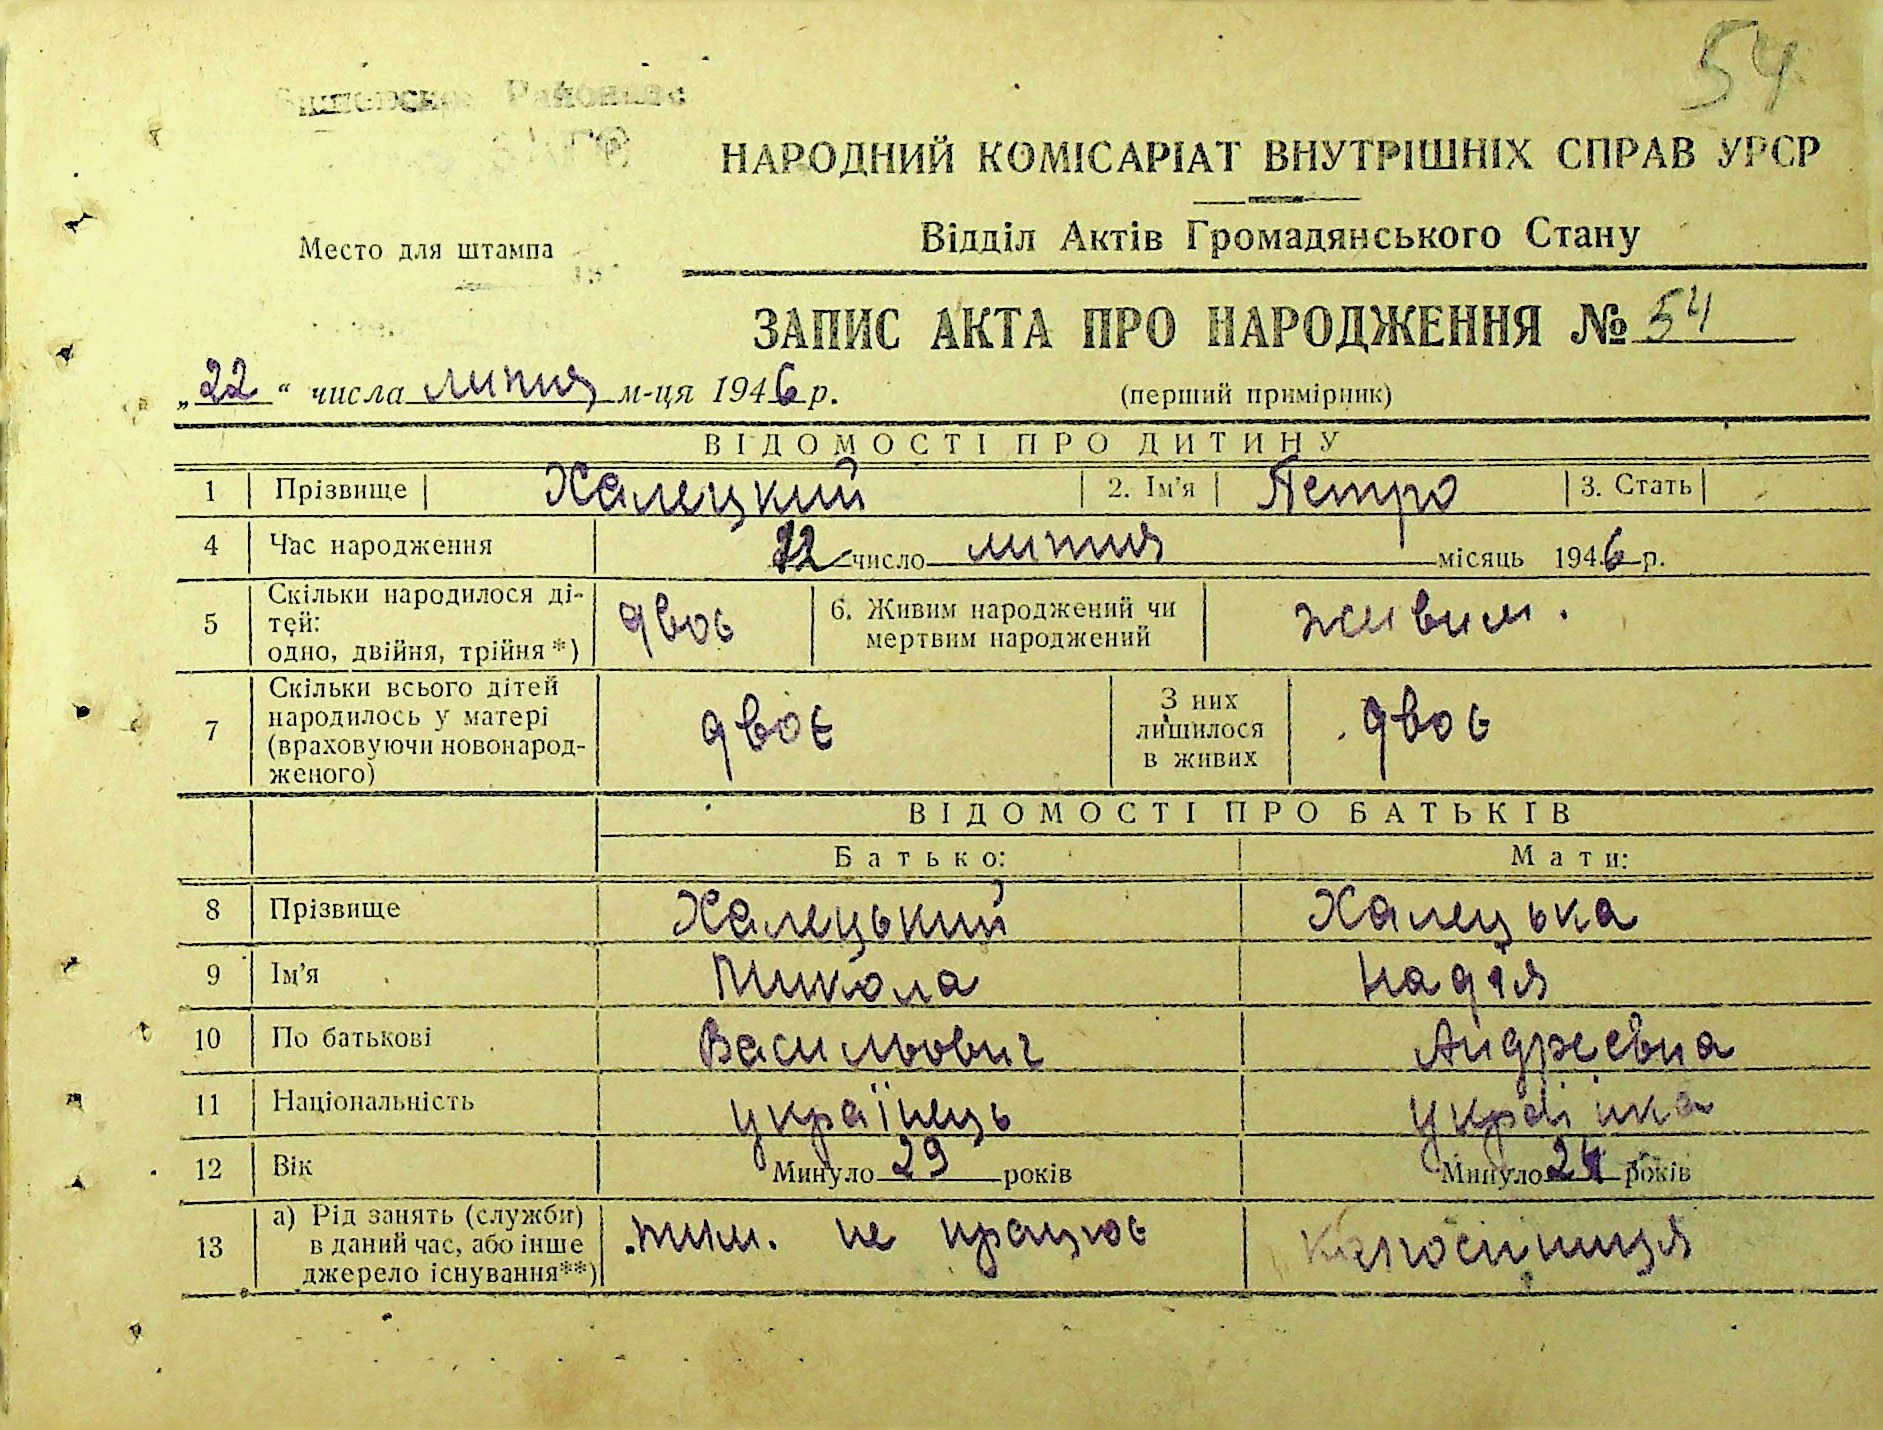 54
НАРОДНИЙ КОМІСАРІАТ ВНУТРІШНІХ СПРАВ УРСР
Место для штампа
Відділ Актів Громадянського Стану
ЗАПИС АКТА ПРО НАРОДЖЕННЯ № 54
„22“ числа липня м-ця 1946 р. (перший примірник)
ВІДОМОСТІ ПРО ДИТИНУ
1 Прізвище Халецкий 2. Ім'я Петро 3. Стать
4 Час народження число липня місяць 1946 р.
5 Скільки народилося ді-
тей:
одно, двійня, трійня*) двоє 6. Живим народжений чи
мертвим народжений живим.
7 Скільки всього дітей
народилось у матері
(враховуючи новонарод-
женого) двоє З них
лишилося
в живих двоє
ВІДОМОСТІ ПРО БАТЬКІВ
Батько: Мати:
8 Прізвище Халецький Халецька
9 Ім'я Микола Надія
10 По батькові Васильович Андреєвна
11 Національність українець українка
12 Вік Минуло 29 років Минуло 24 років
13 а) Рід занять (служби)
в даний час, або інше
джерело існування**) тим. не працює